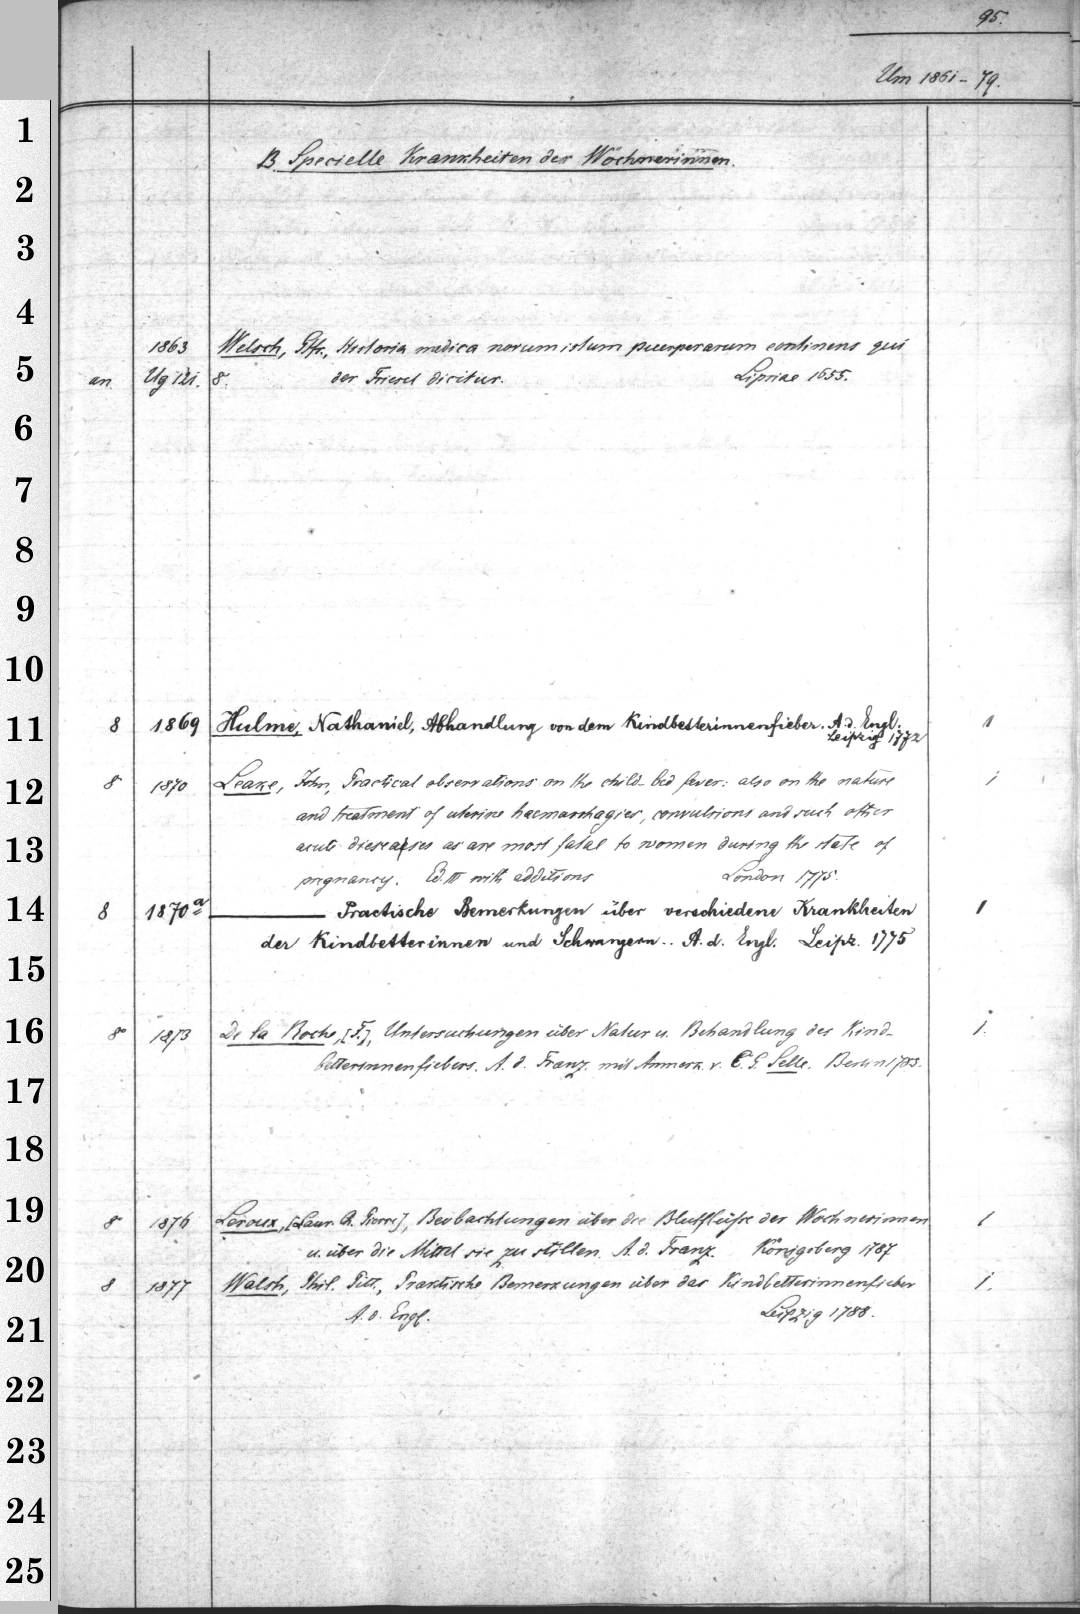 95.
Um 1861-79.
1
B. Specielle Krankheiten der Wöchnerinnen.
2
3
4
1863 Welsch, Gtfr., Historia medica novum istum puerperarum continens qui
5
an Ug 121. 8. der Friesel dicitur. Lipsiae 1655.
6
7
8
9
10
11 8 1869 Hulme, Nathaniel, Abhandlung von dem Kindbetterinnenfieber. A. d. Engl. 1
Leipzig 1772
12 8 1870 Leake, John, Practical observations on the child-bed fever: also on the nature 1
and treatment of uterine haemorrhagies, convulsions and such other
13 acute diseases as are most fatal to women during the state of
pregnancy. Ed. III with additions London 1775.
14 8 1870a ——— Practische Bemerkungen über verschiedene Krankheiten 1
der Kindbetterinnen und Schwangern.. A. d. Engl. Leipz. 1775
15
16 8° 1873 De la Roche, [F.], Untersuchungen über Natur u. Behandlung des Kind- 1.
betterinnenfiebers. A. d. Franz. mit Anmerk. v. C. G. Selle. Berlin 1783.
17
18
19 8° 1876 Leroux, [Laur. Ch. Pierre], Beobachtungen über die Blutflüsse der Wöchnerinnen 1
u. über die Mittel sie zu stillen. A. d. Franz. Königsberg 1787
20 8 1877 Walsh, Phil. Pitt., Praktische Bemerkungen über das Kindbetterinnenfieber 1.
A. d. Engl. Leipzig 1788.
21
22
23
24
25